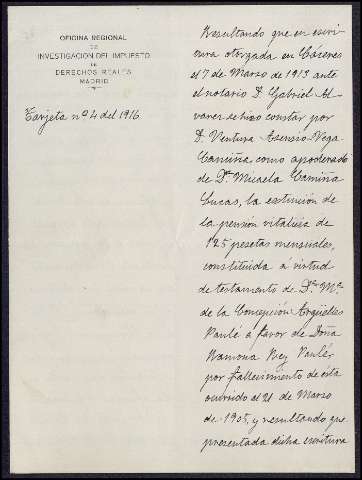 OFICINA REGIONAL
DE
INVESTIGACIÓN DEL IMPUESTO
DE
DERECHOS REALES
MADRID
Tarjeta nº 4 del 1916.
Resultando que en escri-
tura otorgada en Cáceres
el 7 de Marzo de 1913 ante
el notario D. Gabriel Al-
varez se hizo constar por
D. Ventura Asensio Vega
Camiña como apoderado
de Dª Micaela Camiña
Lucas, la extinción de
la pensión vitalicia de
125 pesetas mensuales,
constituida á virtud
de testamento de Dª Mª
de la Concepción Argüelles
Paulé a favor de Doña
Ramona Rey Paulés
por fallecimiento de esta
ocurrido el 21 de Marzo
de 1905, y resultando que
presentada dicha escritura